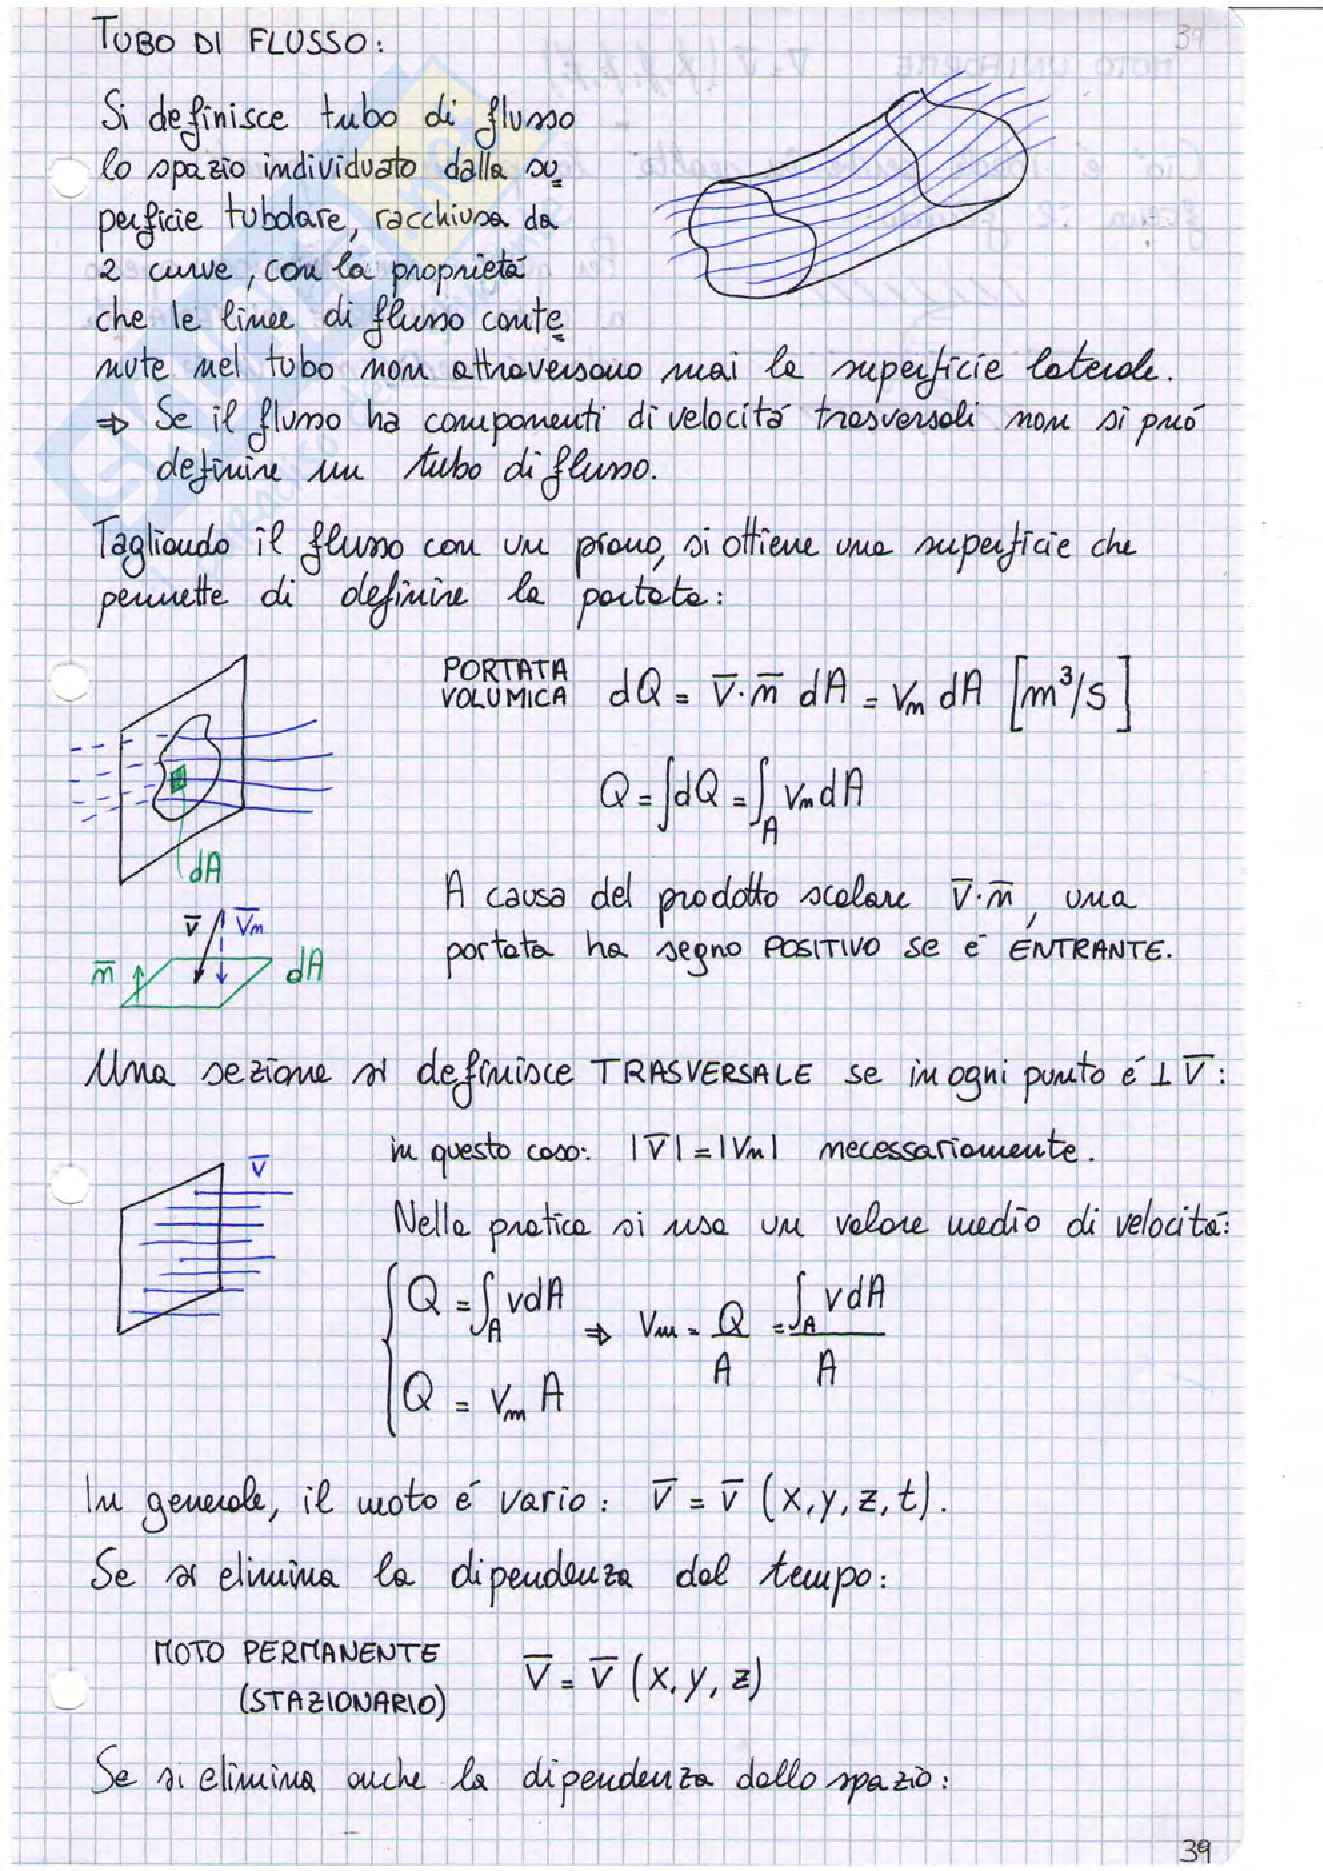 TUBO DI FLUSSO:
39
Si definisce tubo di flusso
lo spazio individuato dalla su=
perficie tubolare, racchiusa da
2 curve, con la proprietá
che le linee di flusso conte=
nute nel tubo non attraversano mai la superficie laterale.
⇒ Se il flusso ha componenti di velocitá trasversali non si puó
definire un tubo di flusso.
Tagliando il flusso con un piano, si ottiene una superficie che
permette di definire la portata:
PORTATA
VOLUMICA dQ = v̅·n̅ dA = vₙ dA [m³/s]
Q = ∫dQ = ∫_A vₙ dA
dA
A causa del prodotto scalare v̅·n̅, una
portata ha segno POSITIVO se é ENTRANTE.
v̅ v̅ₙ
n̅ dA
Una sezione si definisce TRASVERSALE se in ogni punto é ⊥ v̅:
in questo caso: |v̅| = |vₙ| necessariamente.
v̅
Nella pratica si usa un valore medio di velocitá:
Q = ∫_A v dA ⇒ vₘ = Q/A = ∫_A v dA / A
Q = vₘ A
In generale, il moto é vario: v̅ = v̅ (x, y, z, t).
Se si elimina la dipendenza dal tempo:
MOTO PERMANENTE
(STAZIONARIO) v̅ = v̅ (x, y, z)
Se si elimina anche la dipendenza dallo spazio:
39